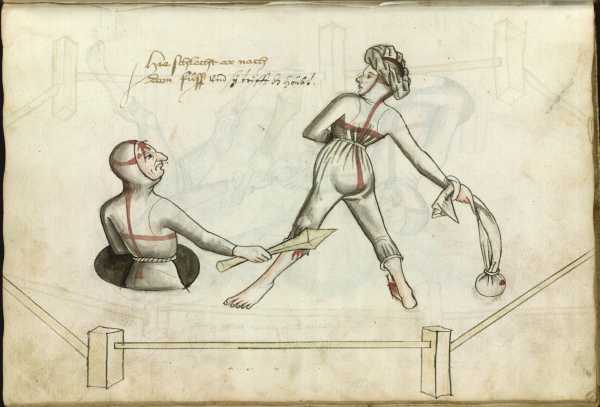 Hie schlecht er nach
dem fuss Und sy trifft he houbt.